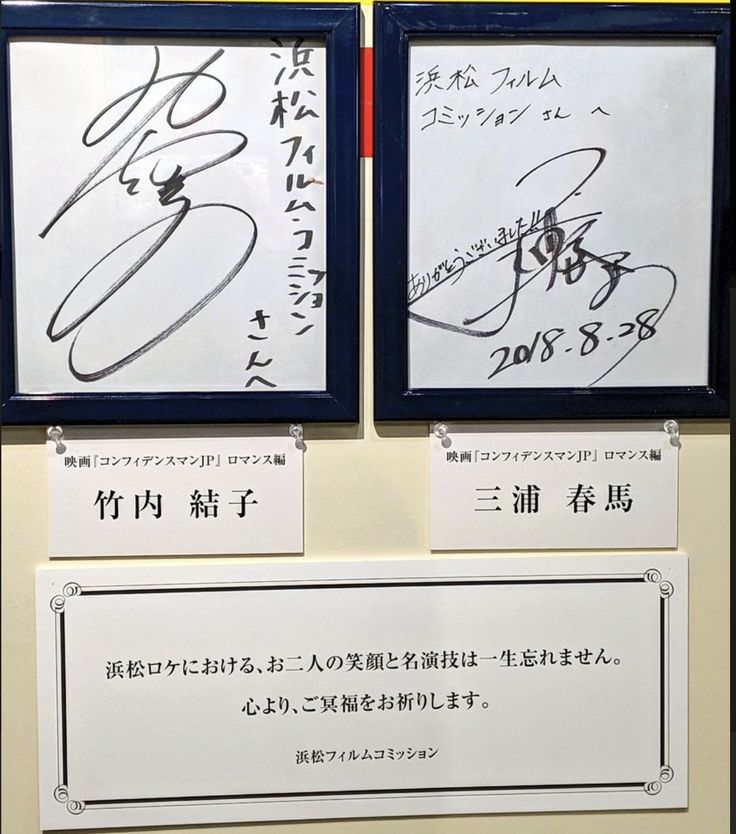 浜松フィルム・コミッション
さんへ
浜松 フィルム
コミッション さん へ
ありがとうございました!!
2018.8.28
映画『コンフィデンスマンJP』ロマンス編
竹内 結子
映画『コンフィデンスマンJP』ロマンス編
三浦 春馬
浜松ロケにおける、お二人の笑顔と名演技は一生忘れません。
心より、ご冥福をお祈りします。
浜松フィルムコミッション